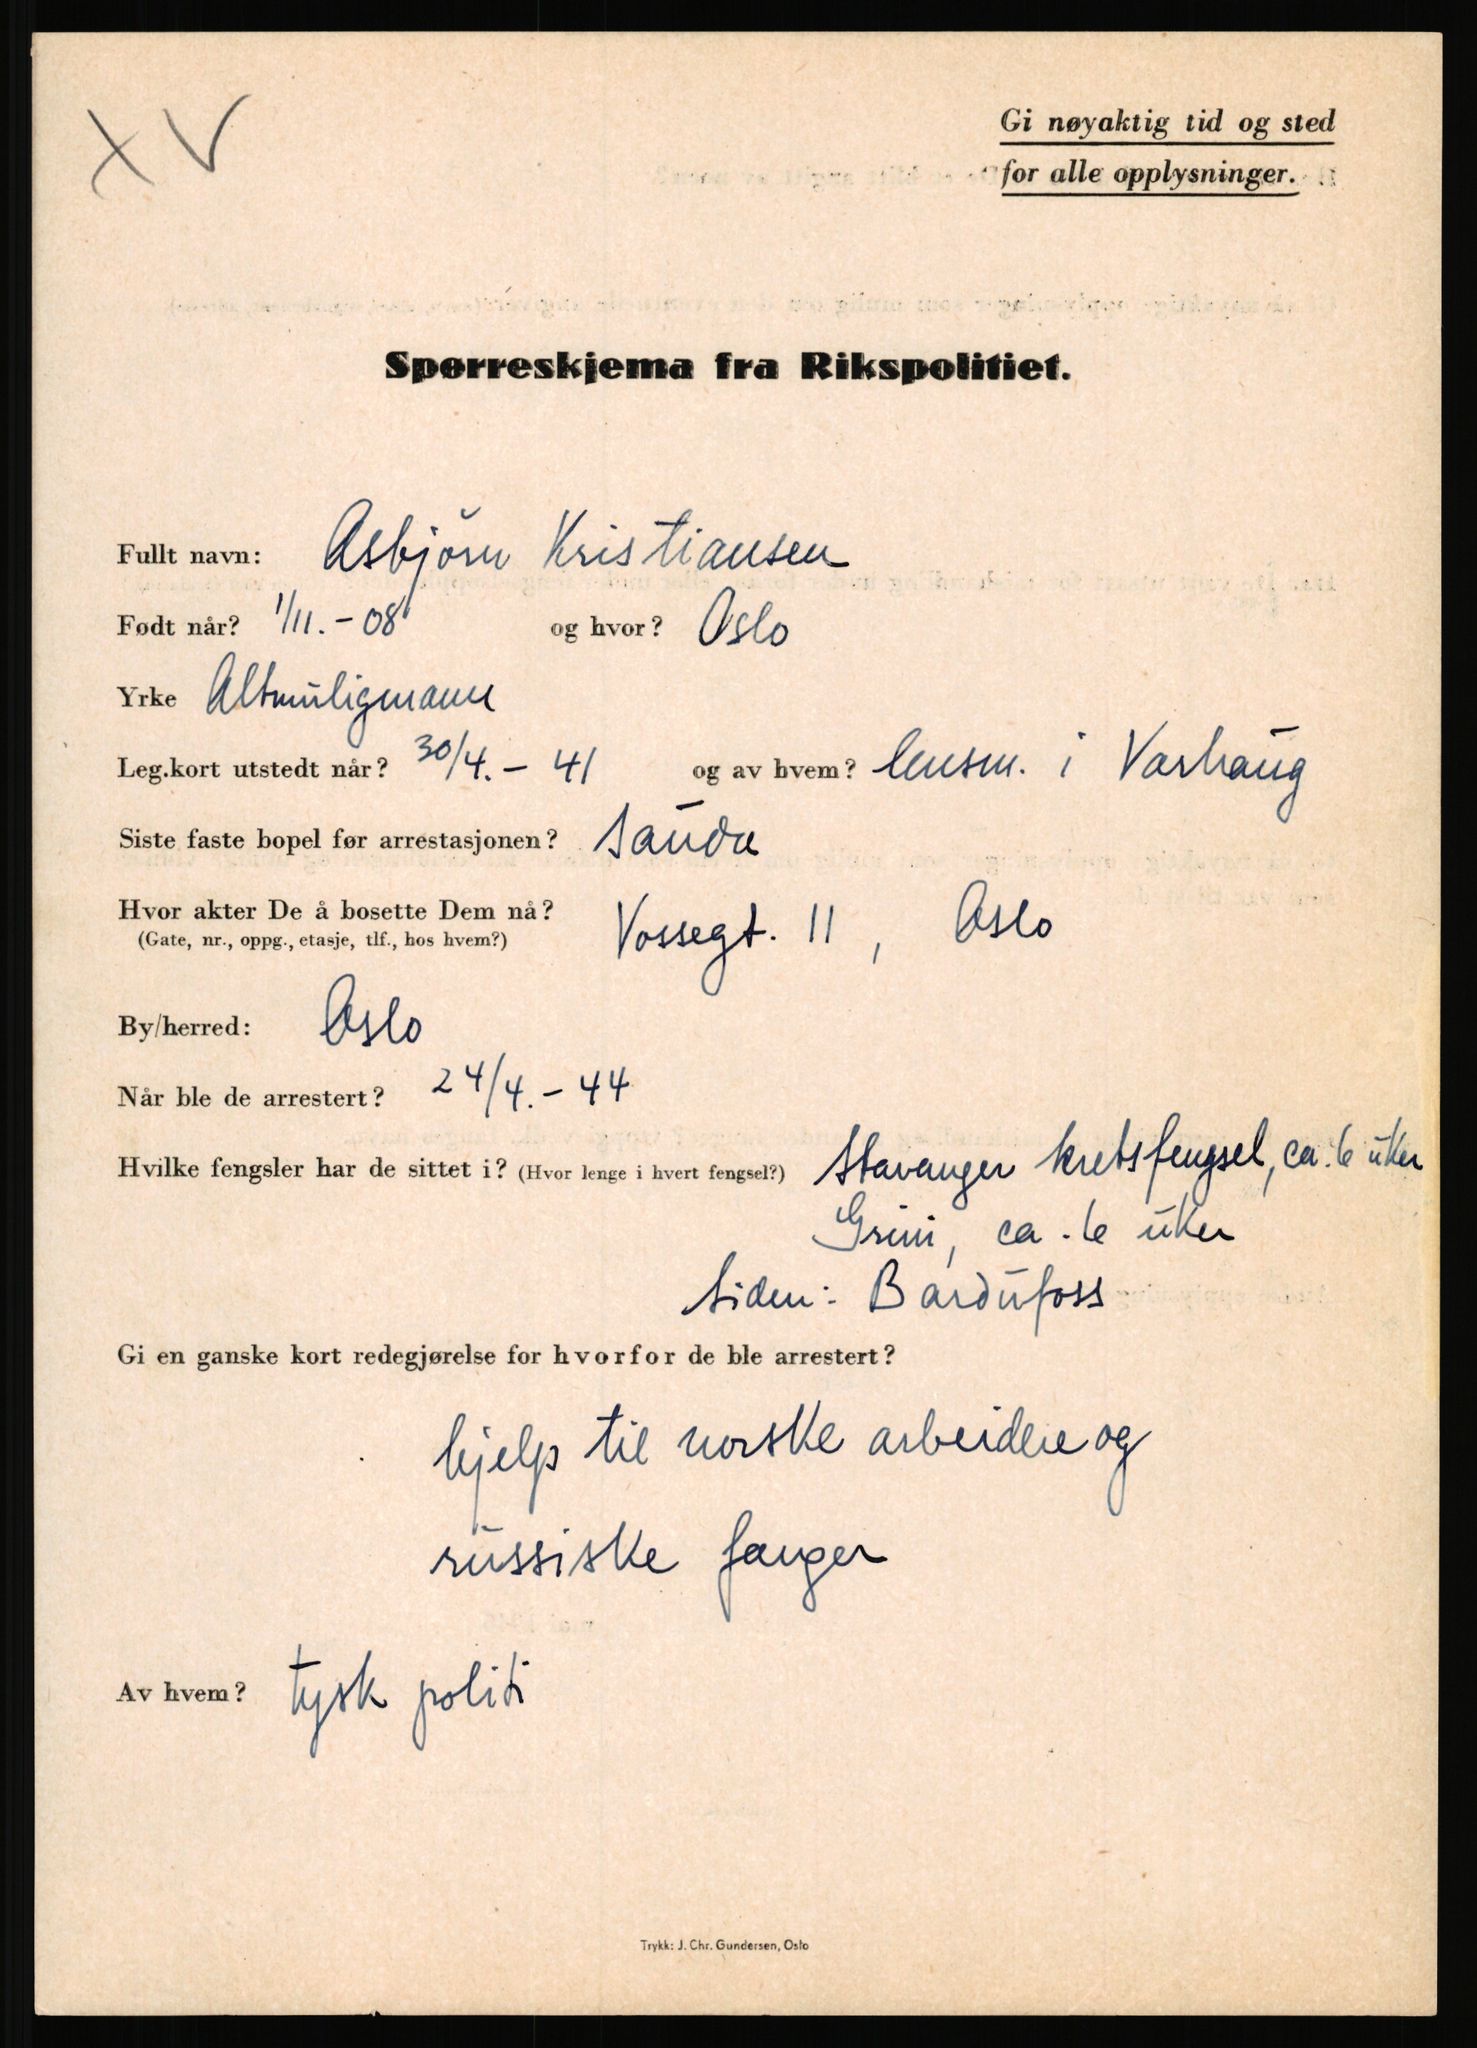 XV
Gi nøyaktig tid og sted
for alle opplysninger.
Spørreskjema fra Rikspolitiet.
Fullt navn: Asbjörn Kristiansen
Født når? 1/11.-08 og hvor? Oslo
Yrke Altmuligmann
Leg.kort utstedt når? 30/4.-41 og av hvem? lensm. i Varhaug
Siste faste bopel før arrestasjonen? Sauda
Hvor akter De å bosette Dem nå? Vossegt. 11, Oslo
(Gate, nr., oppg., etasje, tlf., hos hvem?)
By/herred: Oslo
Når ble de arrestert? 24/4.-44
Hvilke fengsler har de sittet i? (Hvor lenge i hvert fengsel?) Stavanger kretsfengsel, ca. 6 uker
Grini, ca. 6 uker
Siden: Bardufoss
Gi en ganske kort redegjørelse for hvorfor de ble arrestert?
hjelp til norske arbeidere og
russiske fanger
Av hvem? tysk politi
Trykk: J. Chr. Gundersen, Oslo